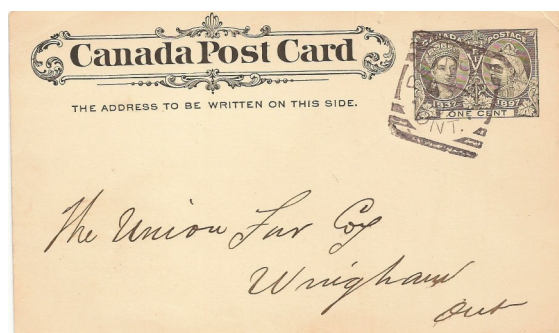 Canada Post Card
THE ADDRESS TO BE WRITTEN ON THIS SIDE.
CANADA POSTAGE
1837 1897
ONE CENT
ONT.
The Union Fur Coy
Wingham
Ont